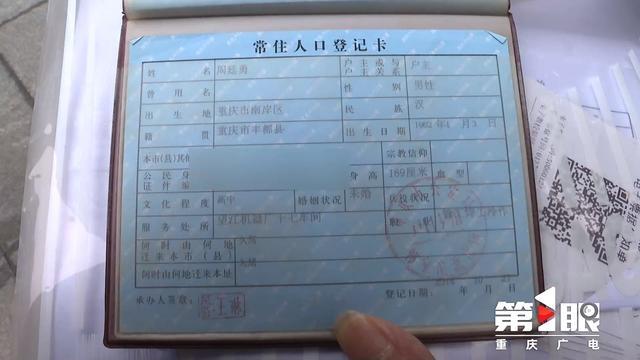 常住人口登记卡
姓名 周廷勇 户主或与户主关系 户主
曾用名 性别 男性
出生地 重庆市南岸区 民族 汉
籍贯 重庆市丰都县 出生日期
本市(县)其他 宗教信仰
公民身 证件编 身高 169厘米 血型
文化程度 高中 婚姻状况 未婚 兵役状况
服务处所 望江机器厂十七车间
何时由何地迁来本市(县) 久居
何时由何地迁来本址 久居
承办人签章: 登记日期: 年 月 日
第1眼
重庆广电